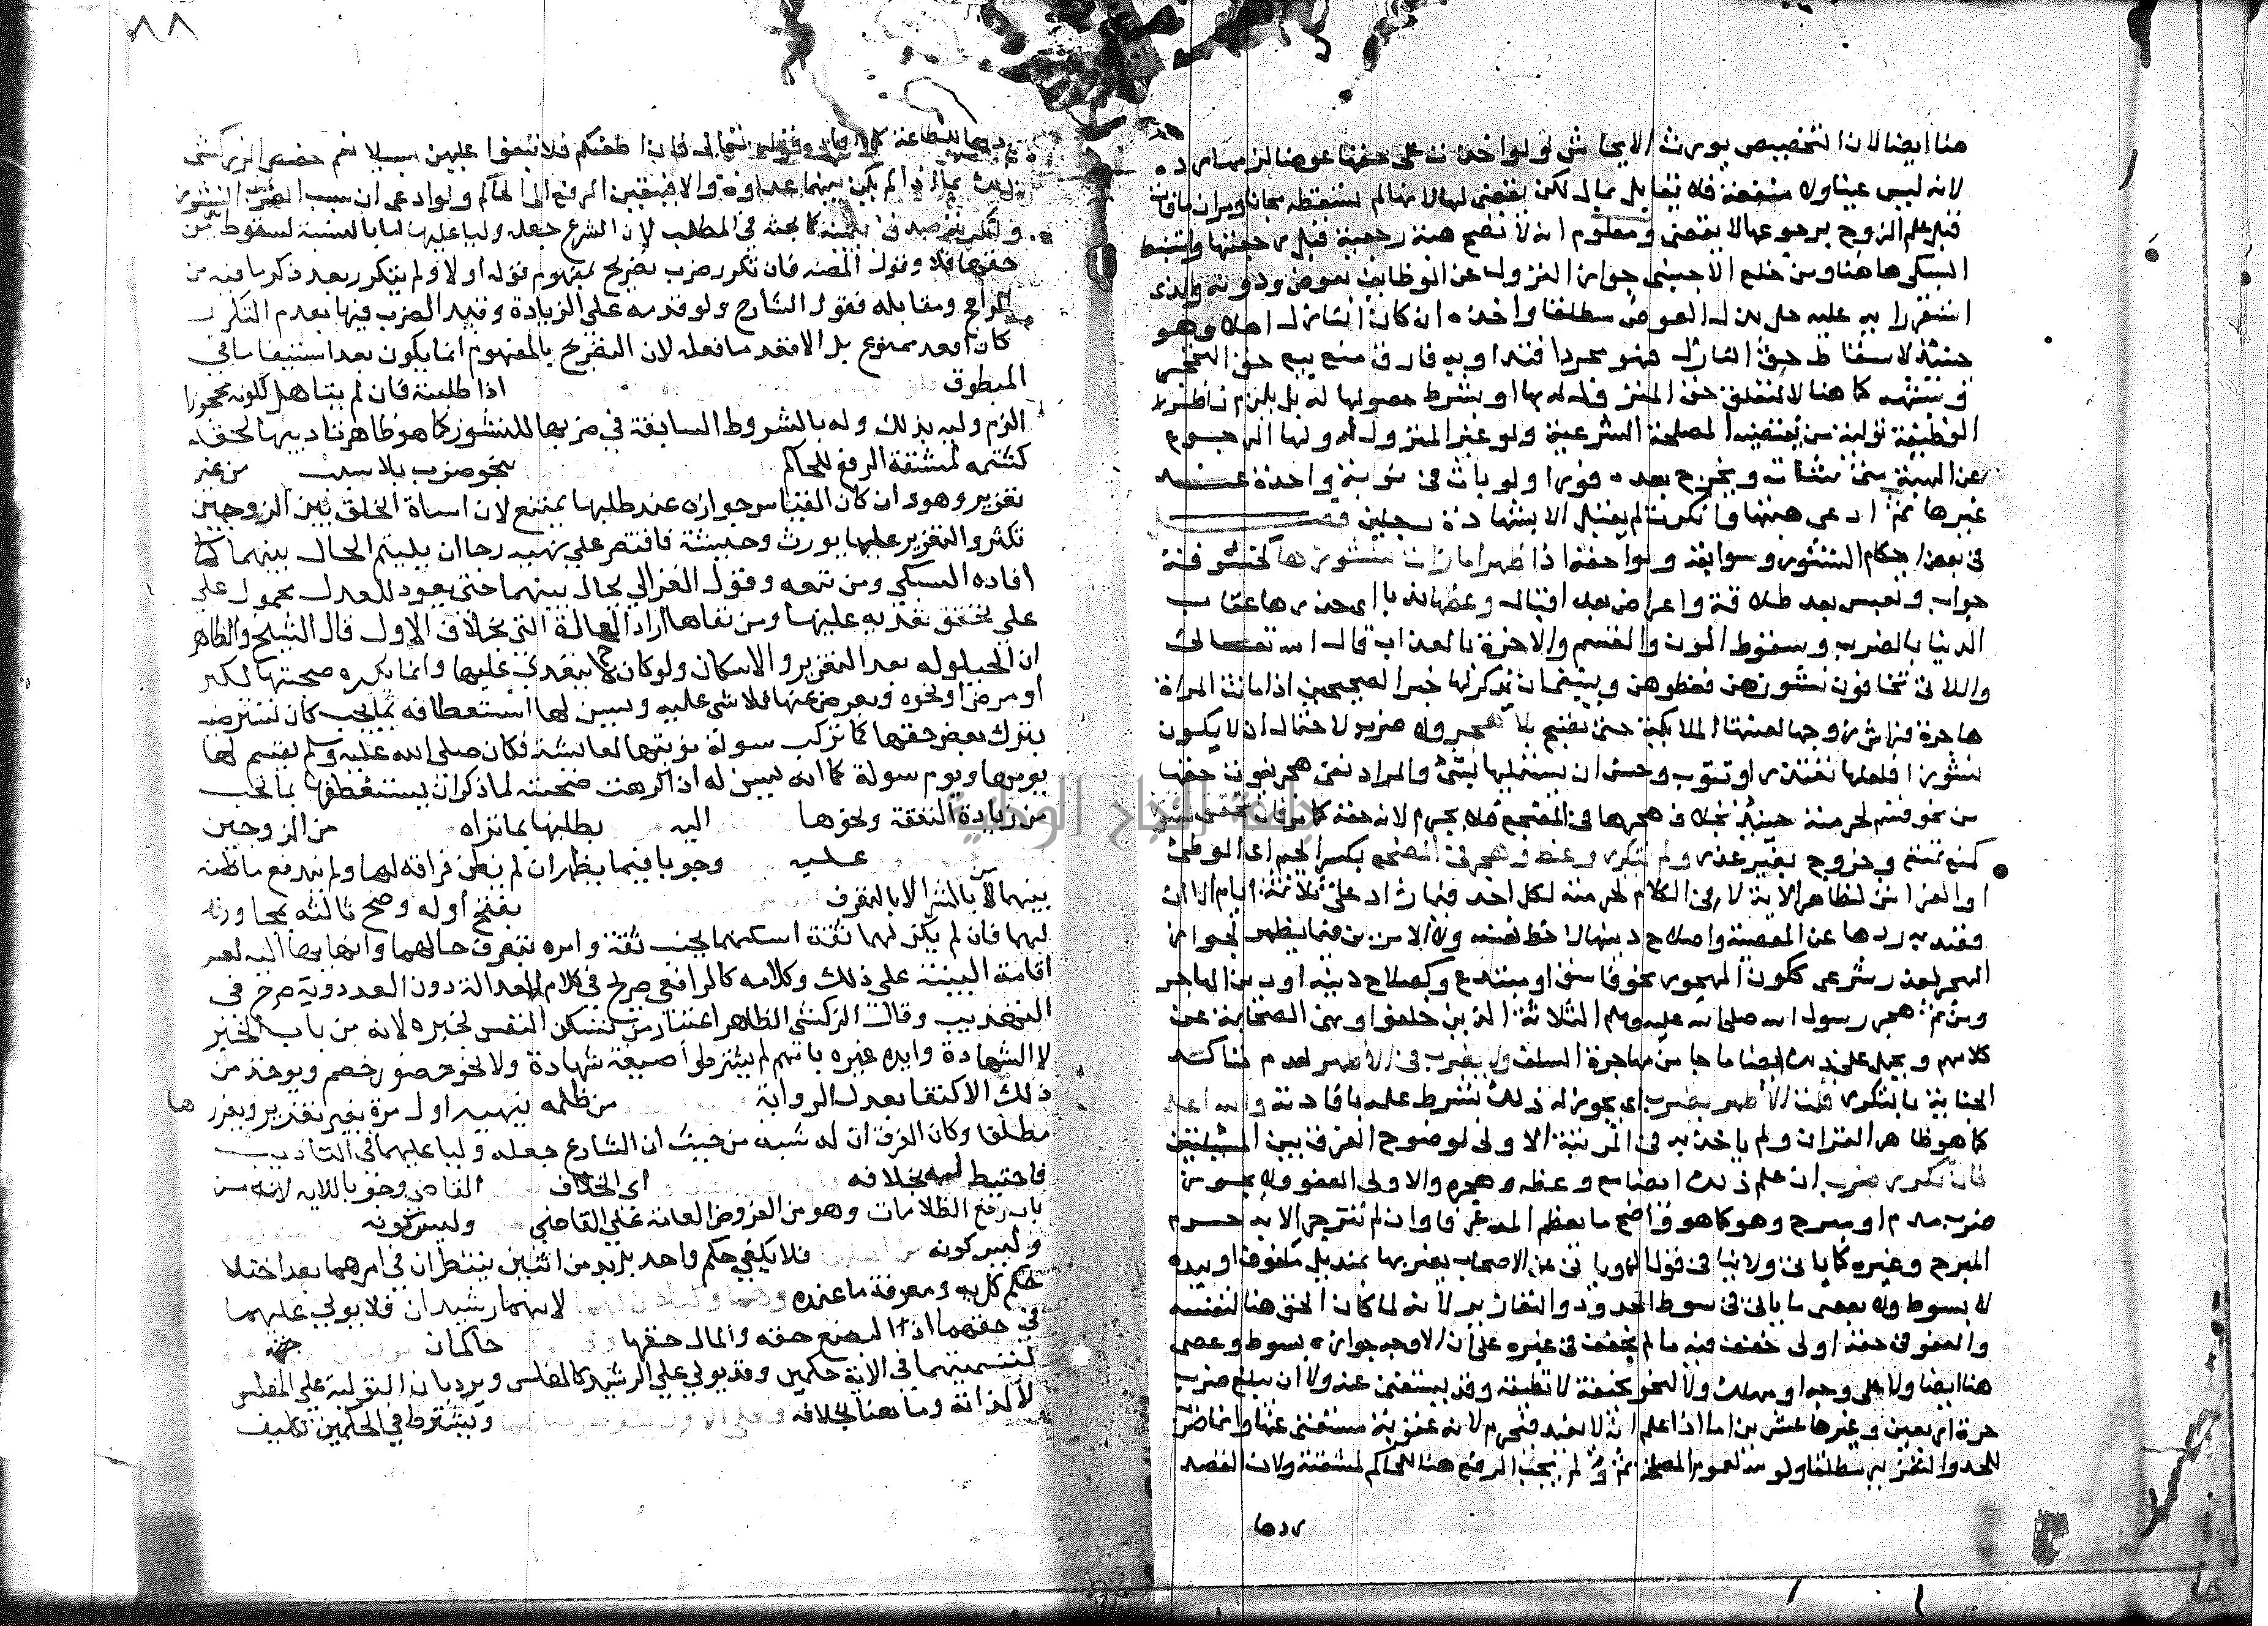 هنا ايضا لان التخصيص يورث الايحاش ولو اخذت على حقها عوضا لزمها رده
لانه ليس عينا ولا منفعة فلا يقابل بمال لكن يقضى لها لانها لم تسقطه مجانا ومر ان ما فات
قبل علم الزوج برجوعها لا يقضى ومعلوم انه لا تصح هبة رجعية قبل رجعتها واستنبط
السبكى ها هنا ومن خلع الاجنبى جواز النزول عن الوظايف بعوض ودونه والذى
استقر رايه عليه حل بذل العوض مطلقا واخذه ان كان النازل اهلا وهو
حينئذ لاسقاط حق النازل فهو مجرد افتدا وبه فارق منع بيع حق التحجر
وشبهه كما هنا لا لتعلق حق المنزول له بها او بشرط حصولها له بل يلزم ناظر
الوظيفة تولية من تقتضيه المصلحة الشرعية ولو غير المنزول له ولها الرجوع
عن الهبة متى شات ويخرج بعده فورا ولو بات فى نوبة واحدة عند
غيرها ثم ادعى هبتها وانكرت لم يقبل الا بشهادة رجلين فصل
فى بعض احكام النشوز وسوابقه ولواحقه اذا ظهر امارات نشوزها كخشونة
جواب وتعبس بعد طلاقة واعراض بعد اقبال وعظها ندبا اى حذرها عقاب
الدنيا بالضرب وسقوط المون والقسم والاخرة بالعذاب قال الله تعالى
واللاتى تخافون نشوزهن فعظوهن وينبغى ان يذكر لها خبر الصحيحين اذا باتت المراة
هاجرة فراش زوجها لعنتها الملايكة حتى تصبح بلا هجر ولا ضرب لاحتمال ان لا يكون
نشوزا فلعلها تعتذر او تتوب وحسن ان يستميلها بشئ والمراد نفى هجر يفوت حقها
من نحو قسم لحرمته حينئذ بخلاف هجرها فى المضجع فلا يحرم لانه حقه كما مر فان تحقق نشوز
كمنع تمتع وخروج بغير عذر ولم يتكرر وعظ وهجر فى المضجع بكسر الجيم اى الوطئ
او الفراش لظاهر الاية لا فى الكلام لحرمته لكل احد فيما زاد على ثلاثة ايام الا ان
وقصد به ردها عن المعصية واصلاح دينها لا حظ نفسه ولا الامرين فيما يظهر لجواز
الهجر لعذر شرعى ككون المهجور نحو فاسق او مبتدع وكصلاح دينه او دين الهاجر
ومن ثم هجر رسول الله صلى الله عليه وسلم الثلاثة الذين خلفوا ونهى الصحابة عن
كلامهم ويحمل على ذلك ايضا ما جا من مهاجرة السلف ولا يضرب فى الاظهر لعدم تاكد
الجناية بالتكرر قلت الاظهر يضرب اى يجوز له ذلك بشرط علمه بافادته والله اعلم
كما هو ظاهر القران ولم ياخذ به فى المرتبة الاولى لوضوح الفرق بين المسئلتين
فان تكرر ضرب ان علم ذلك ايضا مع وعظه وهجره والاولى العفو ولا يجوز
ضرب مدم او مبرح وهو كما هو واضح ما يعظم المه عرفا وان لم تنزجر الا به حرم
المبرح وغيره كما ياتى ولا ينافى قولنا لم ويانى عن الاصحاب يضربها بمنديل ملفوف او بيده
لا بسوط ولا بعصى ما ياتى فى سوط الحدود والتعازير لانه لما كان الحق هنا لنفسه
والعفو فى حقه اولى خفف فيه ما لم يخفف فى غيره على ان الاوجه جوازه بسوط وعصى
هنا ايضا ولا على وجه او مهلك ولا نحو كضعيفة لا تطيقه وقد يستغنى عنه ولا ان يبلغ ضرب
حرة اربعين وغيرها عشرين اما اذا علم انه لا يفيد فيحرم لانه عقوبة مستغنى عنها وانما ضرب
للحد والتعزير مطلقا ولو لله لعموم المصلحة ثم ولم يجب الرفع هنا للحاكم لمشقته ولان القصد
ردها
٨٨
ردها للطاعة كما افاده قوله تعالى فان اطعنكم فلا تبغوا عليهن سبيلا نعم خصص الزركشى
ذلك بما اذا لم يكن بينهما عداوة والا فيتعين الرفع الى الحاكم ولو ادعى ان سبب الضرب النشوز
وانكرت صدق بيمينه كما بحثه فى المطلب لان الشرع جعله وليا عليها اما بالنسبة لسقوط شئ من
حقوقها فلا وقول المصنف فان تكرر ضرب تصريح بمفهوم قوله اولا ولم يتكرر بعد ذكر ما فيه من
الراجح ومقابله فقول الشارح ولو قدمه على الزيادة وقيد الضرب فيها بعدم التكرر
كان اقعد ممنوع بل الاقعد ما فعله لان التصريح بالمفهوم انما يكون بعد استيفا ما فى
المنطوق اذا طلبته فان لم يتاهل لكونه محجورا
الزم وليه بذلك وله بالشروط السابقة فى ضربها للنشوز كما هو ظاهر تاديبها لحقه
كشتمه لمشقة الرفع للحاكم بنحو ضرب بلا سبب من غير
تعزير وهو وان كان القياس جوازه عند طلبها يمتنع لان اساة الخلق بين الزوجين
تكثر والتعزير عليها يورث وحشة فاقتصر على نهيه رجا ان يلتئم الحال بينهما كما
افاده السبكي ومن تبعه وقول الغزالي يحال بينهما حتى يعود للعدل محمول على
على تحقق تعديه عليها ومن نفاها اراد الحالة التى بخلاف الاول قال الشيخ والظاهر
ان الحيلولة بعد التعزير والاسكان ولو كان لا يتعدى عليها وانما يكره صحبتها لكبر
او مرض او نحوه ويعرض عنها فلا شى عليه ويسن لها استعطافه بما يحب كان تسترضيه
بترك بعض حقها كما تركت سودة نوبتها لعائشة فكان صلى الله عليه وسلم يقسم لها
يومها ويوم سودة كما انه يسن له اذا كرهت صحبته لما ذكر ان يستعطفها بما تحب
من زيادة النفقة ونحوها اليه بطلبها بما تراه من الزوجين
عليه وجوبا فيما يظهر ان لم يظن فراقه لهما ولم يندفع ما ظنه
بينهما من الشر الا بالتعرف بفتح أوله وضم ثالثه بمجاورته
لهما فان لم يكن لهما ثقة اسكنهما بجنب ثقة وامره بتعرف حالهما وانهايها اليه لعسر
اقامة البينة على ذلك وكلامه كالرافعى صريح فى العدالة دون العدد وبه صرح فى
التهذيب وقال الزركشى الظاهر اعتبار من تسكن النفس لخبره لانه من باب الخبر
لا الشهادة وايده غيره بانهم لم يشترطوا صيغة شهادة ولا نحو حضور خصم ويوخذ من
ذلك الاكتفا بعدل الرواية من ظلمه بنهيه اول مرة بغير تعزير ويعزر ها
مطلقا وكان الفرق ان له شبه من حيث ان الشارع جعله وليا عليهما فى التاديب
فاحتيط له بخلافه أى الخلاف القاضى وجوبا للاية لانه من
باب رفع الظلامات وهو من الفروض العامة على القاضي وليس كونه
وليس كونه فلا يكفي حكم واحد بل لا بد من اثنين ينظران في امرهما بعد اختلا
حكم كل به ومعرفة ما عنده لانهما رشيدان فلا يولي عليهما
في حقهما اذ البضع حقه والمال حقها حاكمان جهة
لتسميتهما في الاية حكمين وقد يولي علي الرشيد كالمفلس ويرد بان التولية علي المفلس
لا لذاته وما هنا بخلافه ويشترط في الحكمين تكليف